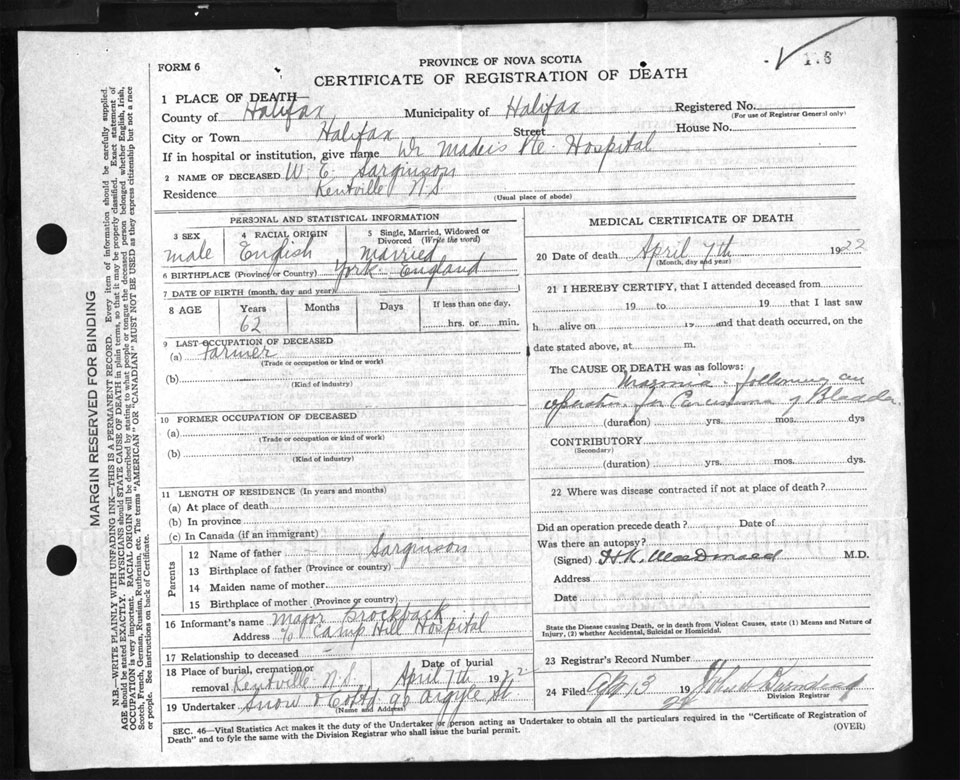 118
FORM 6
PROVINCE OF NOVA SCOTIA
CERTIFICATE OF REGISTRATION OF DEATH
1 PLACE OF DEATH—
County of Halifax Municipality of Halifax Registered No.
(For use of Registrar General only)
City or Town Halifax Street House No.
If in hospital or institution, give name Hospital
2 NAME OF DECEASED W. E. Sarginson
Residence Kentville N.S.
(Usual place of abode)
PERSONAL AND STATISTICAL INFORMATION
3 SEX 4 RACIAL ORIGIN 5 Single, Married, Widowed or Divorced (Write the word)
male English Married
6 BIRTHPLACE (Province or Country) York England
7 DATE OF BIRTH (month, day and year)
8 AGE Years Months Days If less than one day,
62 hrs. or min.
9 LAST OCCUPATION OF DECEASED
(a) Farmer
(Trade or occupation or kind or work)
(b)
(Kind of industry)
10 FORMER OCCUPATION OF DECEASED
(a)
(Trade or occupation or kind of work)
(b)
(Kind of industry)
11 LENGTH OF RESIDENCE (In years and months)
(a) At place of death
(b) In province
(c) In Canada (if an immigrant)
Parents
12 Name of father - Sarginson
13 Birthplace of father (Province or country)
14 Maiden name of mother
15 Birthplace of mother (Province or country)
16 Informant's name Major Brockbank
Address c/o Camp Hill Hospital
17 Relationship to deceased -
18 Place of burial, cremation or removal Kentville N.S. Date of burial April 7th 1922
19 Undertaker Snow & Co Ltd 90 Argyle St.
(Name and Address)
MEDICAL CERTIFICATE OF DEATH
20 Date of death April 7th 1922
(Month, day and year)
21 I HEREBY CERTIFY, that I attended deceased from
19 to 19 that I last saw
h alive on 19 and that death occurred, on the
date stated above, at m.
The CAUSE OF DEATH was as follows:
following an
operation for Carcinoma of Bladder.
(duration) yrs. mos. dys
CONTRIBUTORY
(Secondary)
(duration) yrs. mos. dys.
22 Where was disease contracted if not at place of death?
Did an operation precede death? Date of
Was there an autopsy?
(Signed) H.K. MacDonald M.D.
Address
Date
State the Disease causing Death, or in death from Violent Causes, state (1) Means and Nature of
Injury, (2) whether Accidental, Suicidal or Homicidal.
23 Registrar's Record Number
24 Filed Ap 13 1922 John
Division Registrar
SEC. 46—Vital Statistics Act makes it the duty of the Undertaker or person acting as Undertaker to obtain all the particulars required in the "Certificate of Registration of
Death" and to fyle the same with the Division Registrar who shall issue the burial permit.
(OVER)
MARGIN RESERVED FOR BINDING
N.B.—WRITE PLAINLY WITH UNFADING INK—THIS IS A PERMANENT RECORD. Every item of information should be carefully supplied.
AGE should be stated EXACTLY. PHYSICIANS should STATE CAUSE OF DEATH in plain terms, so that it may be properly classified. Exact statement of
OCCUPATION is very important. RACIAL ORIGIN will be described by stating to what people or tongue the deceased person belonged whether English, Irish,
Scotch, French, German, Russian, Ruthenian, etc. The terms "AMERICAN" OR "CANADIAN" MUST NOT BE USED as they express citizenship but not a race
or people. See instructions on back of Certificate.